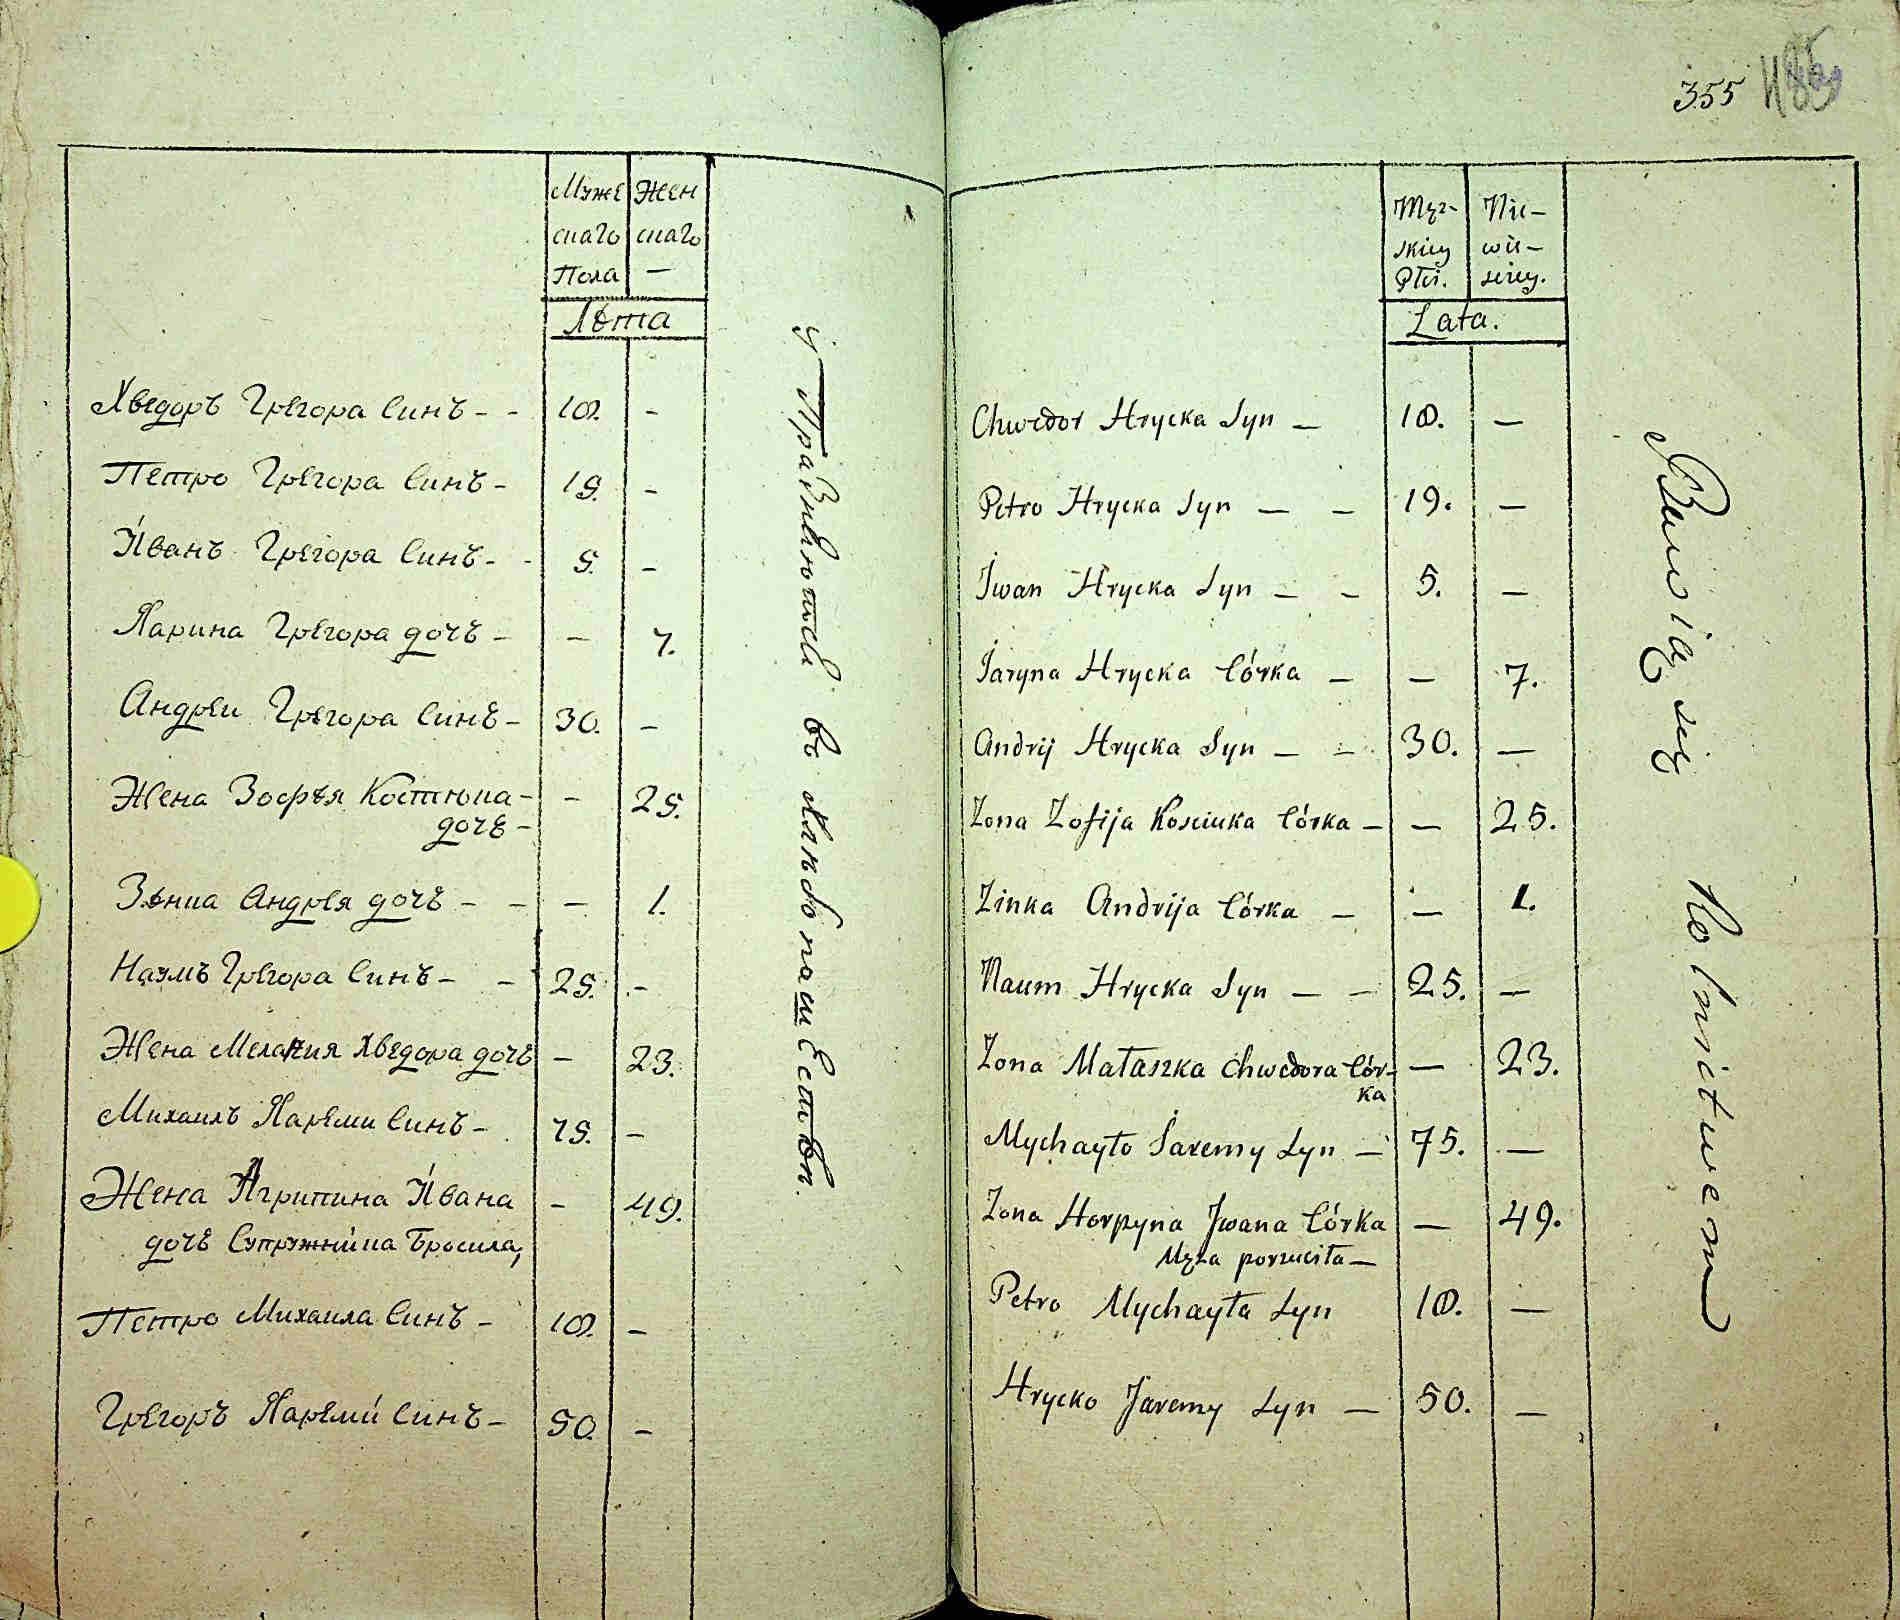 Муже Жен
скаго скаго
Пола —
Лѣта
Хведоръ Грегора Синъ - - 18. -
Петро Грегора Синъ - 19. -
Иванъ Грегора Синъ - - 5. -
Ярина Грегора дочь - - 7.
Андрей Грегора Синъ - 30. -
Жена Зофья Костюка - - 25.
дочь -
Зѣнка Андрея дочь - - - 1.
Наумъ Грегора Синъ - - 25. -
Жена Мелания Хведора дочь - 23.
Михаилъ Яреми Синъ - 75. -
Жена Агрипина Ивана - 49.
дочь Супружника Бросила,
Петро Михаила Синъ - 18. -
Грегоръ Яреми Синъ - 50. -
въ хлѣбопашествѣ.
355
Męz- Nie-
skiey wie-
Płci. sciey.
Lata.
Chwedor Hrycka Syn — 18. —
Petro Hrycka Syn — — 19. —
Iwan Hrycka Syn — — 5. —
Jaryna Hrycka Córka — — 7.
Andrij Hrycka Syn — — 30. —
Zona Zofija Kosciuka Córka — — 25.
Zinka Andrija Córka — — 1.
Naum Hrycka Syn — — 25. —
Zona Małaszka Chwedora Cór- — 23.
ka
Mychayło Jaremy Syn — 75. —
Zona Horpyna Jwana Córka — 49.
Męza porzuciła —
Petro Mychayła Syn 18. —
Hrycko Jaremy Syn — 50. —
Bawią się Rolnictwem